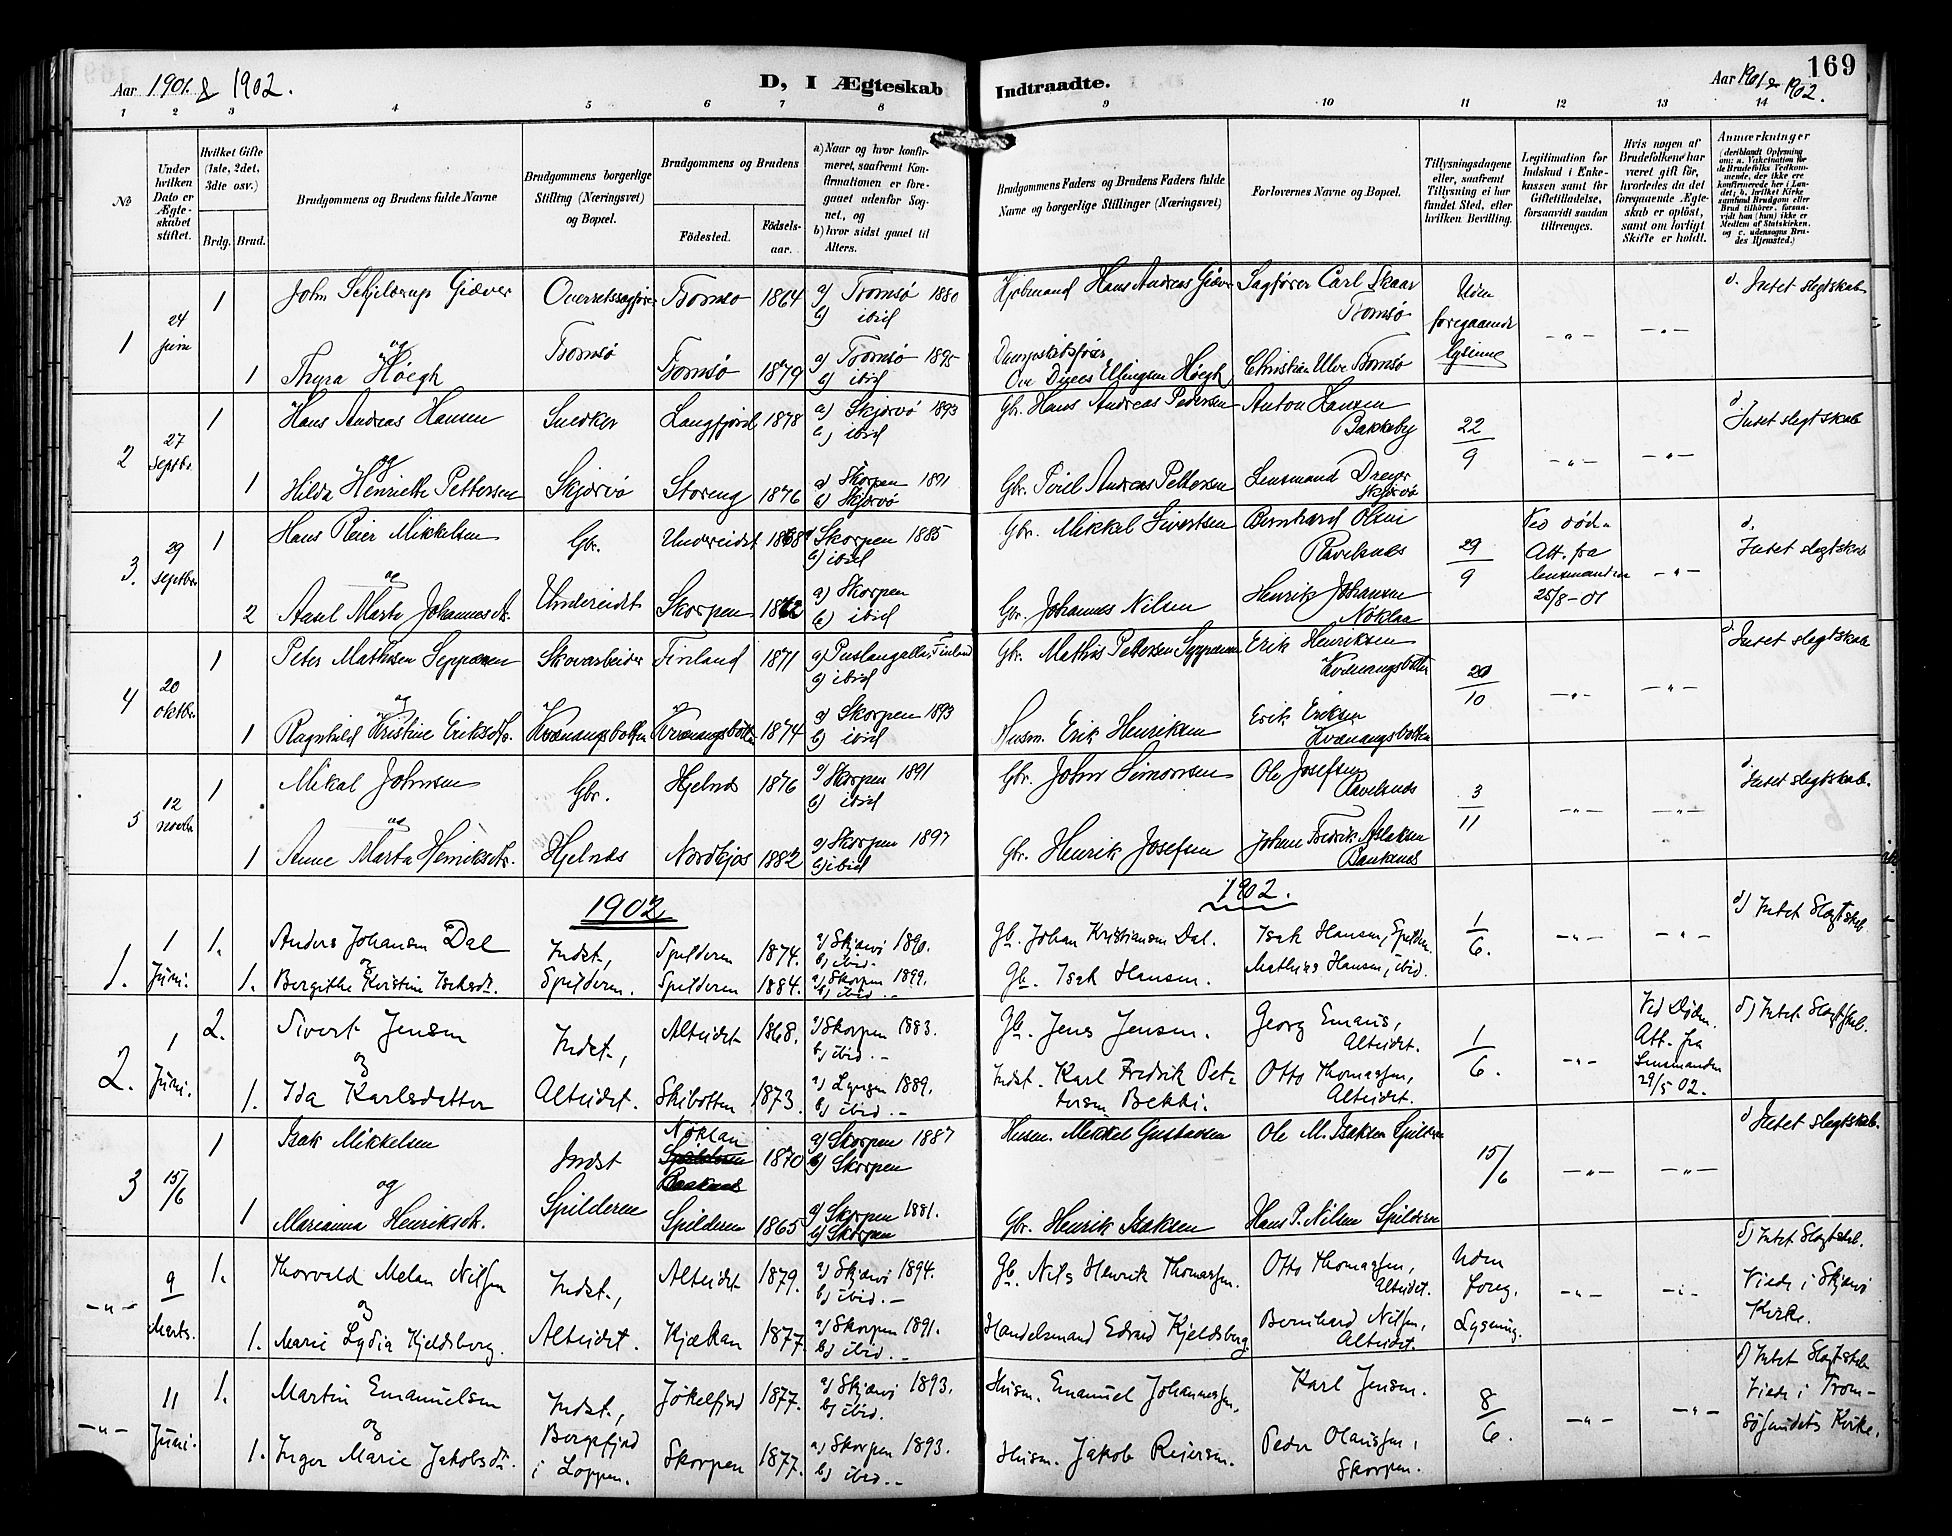 Aar 1901 & 1902.
D, I Ægteskab Indtraadte.
Aar 1901 & 1902.
169
1 2 3 4 5 6 7 8 9 10 11 12 13 14
No
Under hvilken Dato er Ægteskabet stiftet.
Hvilket Gifte (1ste, 2det, 3dte osv.)
Brdg. Brud.
Brudgommens og Brudens fulde Navne
Brudgommens borgerlige Stilling (Næringsvei) og Bopæl.
Brudgommens og Brudens
Fødested.
Fødselsaar.
a) Naar og hvor konfirmeret, saafremt Konfirmationen er foregaaet udenfor Sognet, og
b) hvor sidst gaaet til Alters.
Brudgommens Faders og Brudens Faders fulde Navne og borgerlige Stillinger (Næringsvei)
Forlovernes Navne og Bopæl.
Tillysningsdagene eller, saafremt Tillysning ei har fundet Sted, efter hvilken Bevilling.
Legitimation for Indskud i Enkekassen samt for Giftetilladelse, forsaavidt saadan tiltrænges.
Hvis nogen af Brudefolkene har været gift før, hvorledes da det foregaaende Ægteskab er opløst, samt om lovligt Skifte er holdt.
Anmærkninger (deriblandt Oplysning om: a. Vakcination for de Brudefolks Vedkommende, der ikke ere konfirmerede her i Landet; b. hvilket Kirkesamfund Brudgom eller Brud tilhører, forsaavidt han (hun) ikke er Medlem af Statskirken, og c. udensogns Brudes Hjemsted.)
1 24 juni 1 John Schjelderup Giæver Overretssagfører Tromsø 1864 a) Tromsø 1880 b) ibid Hans Andreas Giæver Sagfører Carl Skaar Tromsø Uden foregaaende lysning -"- -"- d. Intet slegtskab
og
1 Thyra Höegh Tromsø Tromsø 1879 a) Tromsø 1895 b) ibid Dampskibsfører Høegh Christian Tromsø
2 27 septbr. 1 Hans Andreas Hansen Snedker Langfjord 1878 a) Skjervö 1893 b) ibid Gbr. Hans Andreas Pedersen Anton Hansen Bakkeby 22/9 -"- -"- d. Intet slegtskab
og
1 Hilda Henriette Pettersen Skjervö Storeng 1876 a) Skorpen 1891 b) Skjervö Gbr. Andreas Pettersen Lensmand Dreyer Skjervö
3. 29 septbr. 1 Hans Reier Mikkelsen Gbr. Undereidet 1868 a) Skorpen 1885 b) ibid Gbr. Mikkel Sivertsen Bernhard Olsen Ravelsnes 29/9 Ved död. Att. fra lensmanden 25/8-01 -"- d. Intet slegtskab
og
2 Marta Johannesdtr. Undereidet Skorpen 1862 a) Skorpen b) ibid Gbr. Johannes Nilsen Henrik Johansen Nöklan
4 20 oktbr. 1 Peter Mathisen Seppænen Skovarbeider Finland 1871 Finland b) ibid Gbr. Mathis Pettersen Erik Henriksen Kvænangsbotten 20/10 -"- -"- d. Intet slegtskab
og
1 Ragnhild Kristine Eriksdtr. Kvænangsbotten Kvænangsbotten 1874 a) Skorpen 1893 b) ibid Husm. Erik Henriksen Erik Eriksen Kvænangsbotten
5 12 novbr. 1 Mikal Johnsen Gbr. Hjelnes 1876 a) Skorpen 1891 b) ibid Gbr. John Simonsen Ole Josefsen Ravelsnes 3/11 -"- -"- d. Intet slegtskab.
og
1 Anne Marta Henriksdtr. Hjelnes Nordkjos 1882 a) Skorpen 1897 b) ibid Gbr. Henrik Josefsen Johan Fredrik Aslaksen
1902 1902.
1. 1 Juni. 1. Anders Johansen Dal Indst., Spilderen 1874. a) Skjervö 1890. b) ibid. Gb. Johan Kristiansen Dal. Isak Hansen, Spilderen 1/6. -"- -"- d) Intet Slegtskab.
og
1. Bergithe Kristine Isaksdtr. Spilderen. Spilderen 1884. a) Skorpen 1899. b) ibid.- Gb. Isak Hansen. Mathias Hansen, ibid.
2. 1 Juni. 2. Sivert Jensen Indst., Alteidet 1868. a) Skorpen 1883. b) ibid.- Gb. Jens Jensen. Georg Emaus, Alteidet. 1/6. -"- Ved Døden. Att. fra Lensmanden 29/5 02. d) Intet Slegtskab.
og
1. Ida Karlsdatter Alteidet. Skibotten 1873. a) Lyngen 1889. b) ibid.- Indst. Karl Fredrik Petersen Bekki. Otto Thomassen, Alteidet.
3 15/6 1 Isak Mikkelsen Indst Nöklan 1870 a) Skorpen 1887 b) Skorpen Husm. Mikkel Gustavsen Ole M. Isaksen Spilderen 15/6 -"- -"- d) Intet slegtskab.
og
1 Marianna Henriksdtr. Spilderen Spilderen 1865 a) Skorpen 1881. b) Skorpen Gbr. Henrik Isaksen Hans P. Nilsen Spilderen
-"- 9 Marts. 1. Thorvald Melan Nilsen Indst., Alteidet 1879. a) Skjervö 1894. b) ibid.- Gb. Nils Henrik Thomassen. Otto Thomassen, Alteidet. Uden foreg. Lysning. -"- -"- d) Intet Slegtskab. Viede i Skjervö Kirke.
og
1. Marie Lydia Kjeldsberg. Alteidet. Kjækan 1877. a) Skorpen 1891. b) ibid.- Handelsmand Edvard Kjeldsberg. Bernhard Nilsen, Alteidet.
-"- 11 Juni. 1. Martin Emanuelsen Indst., Jøkelfjord 1877. a) Skjervö 1893. b) ibid. Husm. Emanuel Johannessen. Karl Jensen. 8/6. -"- -"- d) Intet Slegtskab Viede i Tromsøsundets Kirke.
og
1. Inger Marie Jakobsdtr. Bergsfjord i Loppen. Skorpen 1877. a) Skorpen 1893. b) ibid.- Husm. Jakob Reiersen. Peder Olaussen, Skorpen.